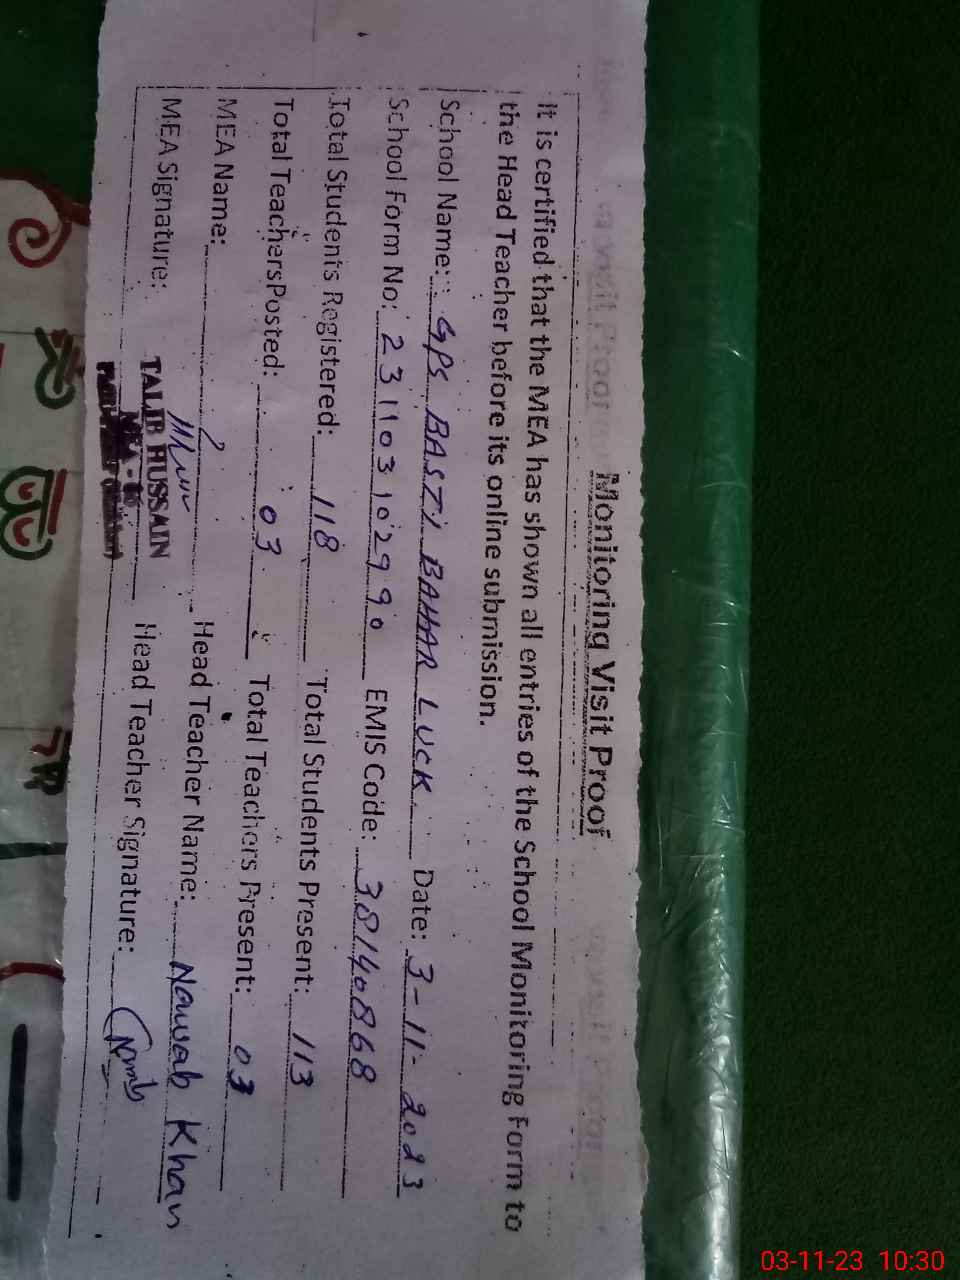 Monitoring Visit Proof
It is certified that the MEA has shown all entries of the School Monitoring Form to
the Head Teacher before its online submission.
School Name: GPS BASTI BAHAR LUCK Date: 3-11-2023
School Form No: 231103102990 EMIS Code: 38140868
Total Students Registered: 118 Total Students Present: 113
Total TeachersPosted: 03 Total Teachers Present: 03
MEA Name: Head Teacher Name: Nawab Khan
MEA Signature: TALIB HUSSAIN Head Teacher Signature:
03-11-23 10:30